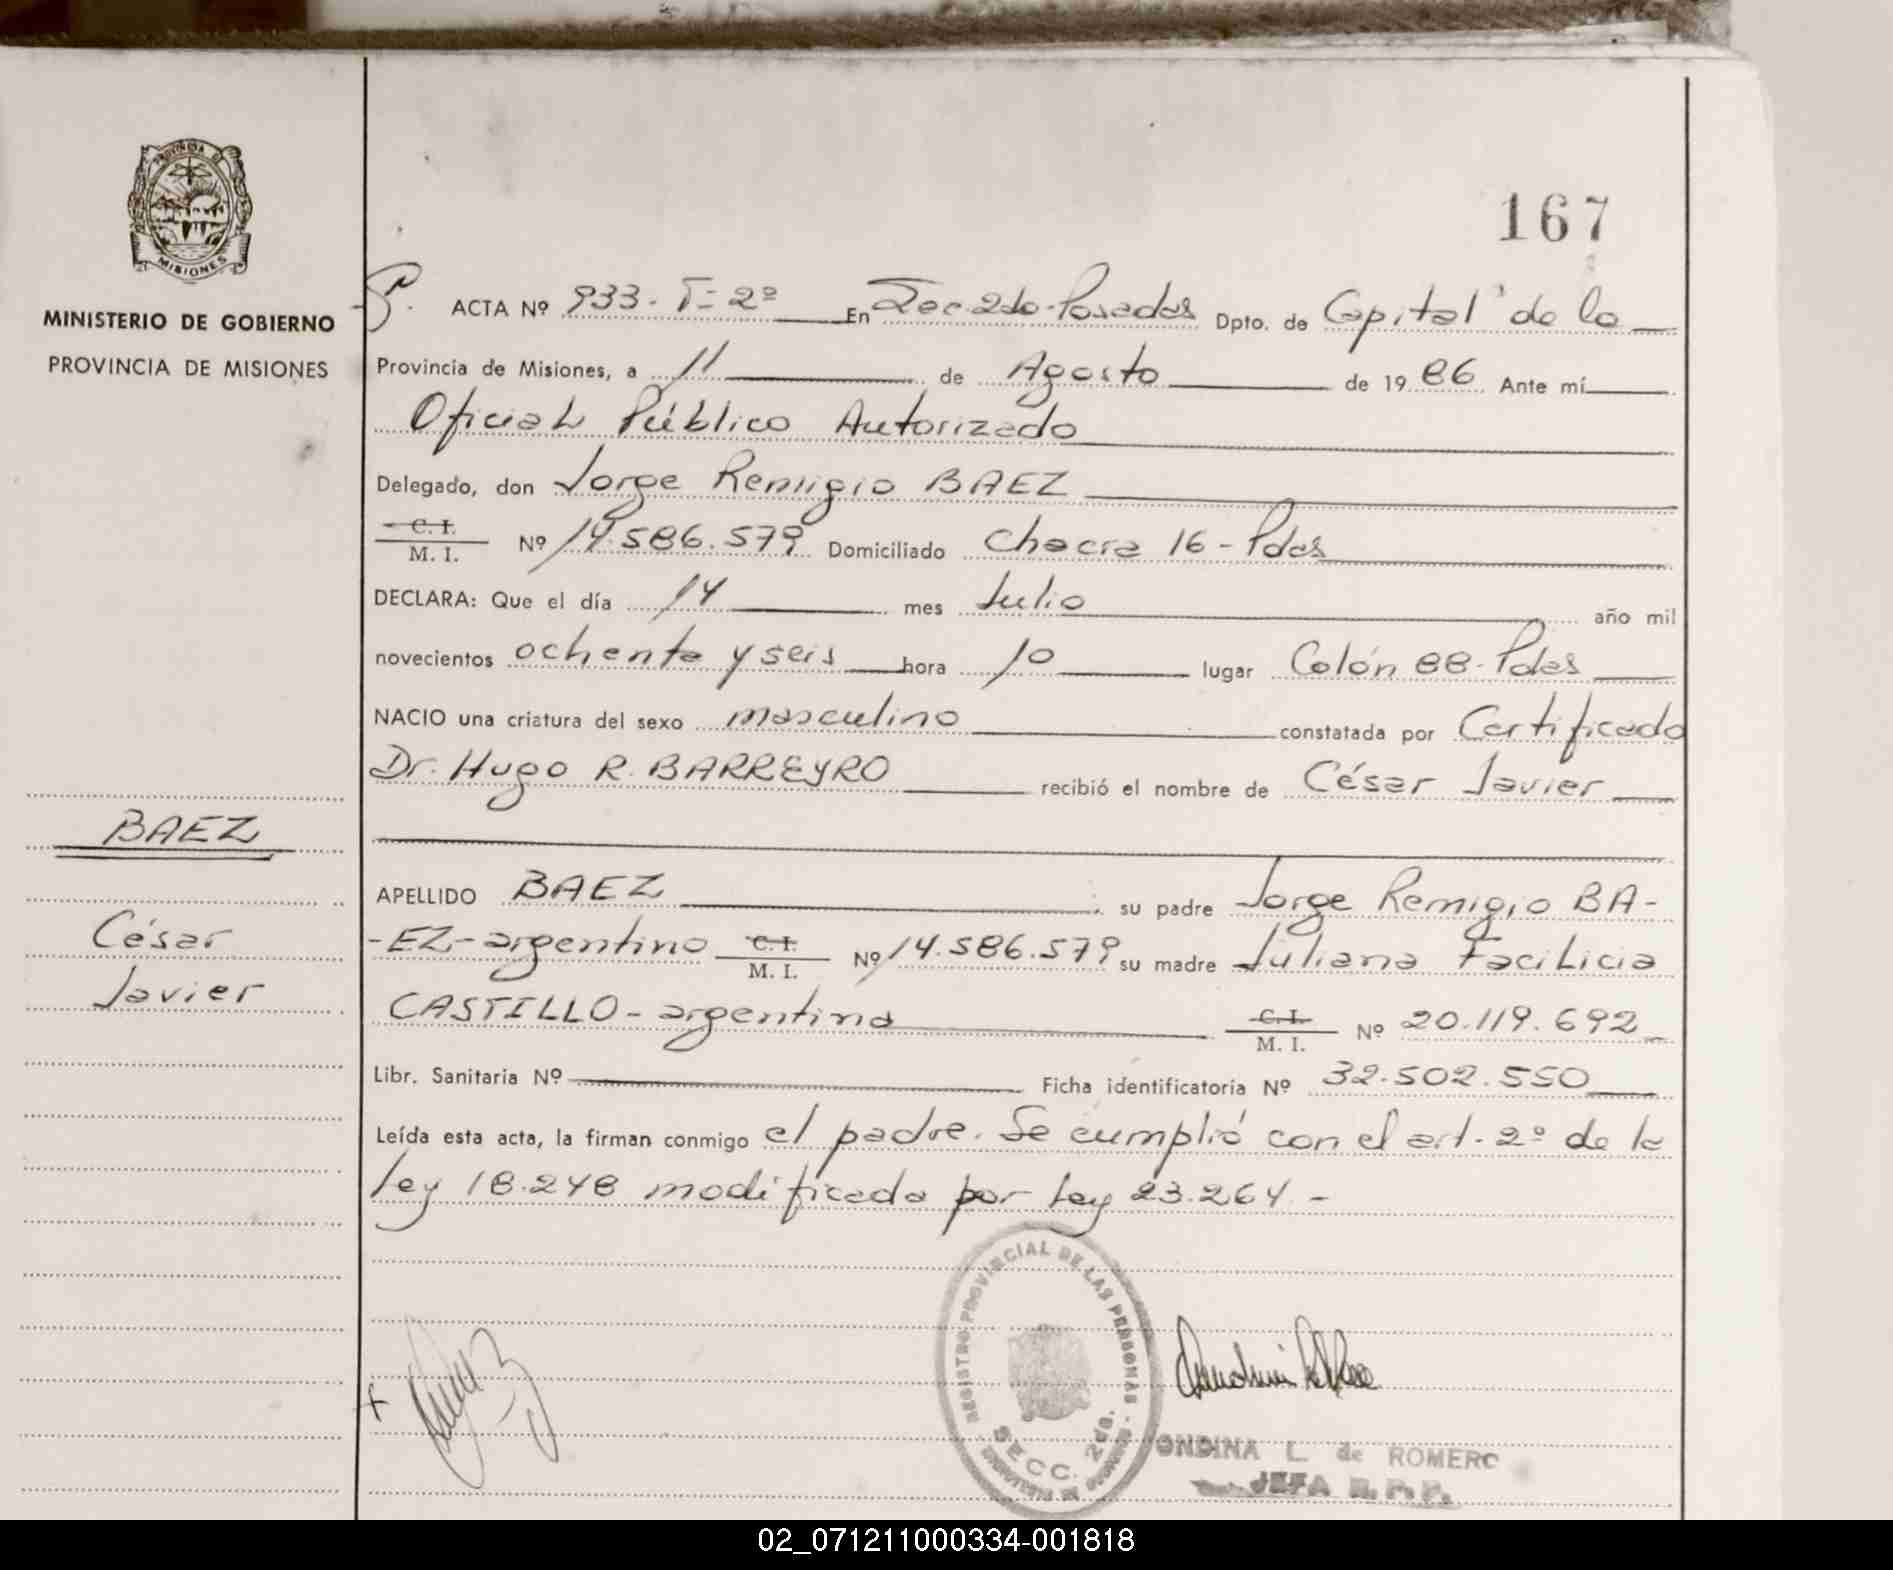 PROVINCIA DE
MISIONES
MINISTERIO DE GOBIERNO
PROVINCIA DE MISIONES
BAEZ
César
Javier
167
ACTA Nº 933. T= 2º En Sec 2do-Posadas Dpto. de Capital de la
Provincia de Misiones, a 11 de Agosto de 1986 Ante mí
Oficial Público Autorizado
Delegado, don Jorge Remigio BAEZ
C. I.
M. I. Nº 14.586.579 Domiciliado Chacra 16-Pdas
DECLARA: Que el día 14 mes Julio año mil
novecientos ochenta y seis hora 10 lugar Colón 88-Pdas
NACIO una criatura del sexo masculino constatada por Certificado
Dr. Hugo R. BARREYRO recibió el nombre de César Javier
APELLIDO BAEZ su padre Jorge Remigio BA-
-EZ-argentino C. I. M. I. Nº 14.586.579 su madre Juliana Facilicia
CASTILLO-argentina C. I. M. I. Nº 20.119.692
Libr. Sanitaria Nº Ficha identificatoria Nº 32.502.550
Leída esta acta, la firman conmigo el padre. Se cumplió con el art. 2º de la
Ley 18.248 modificada por Ley 23.264.-
REGISTRO PROVINCIAL DE LAS PERSONAS
SECC. 2da.
ONDINA L. de ROMERO
JEFA R.P.P.
02_071211000334-001818